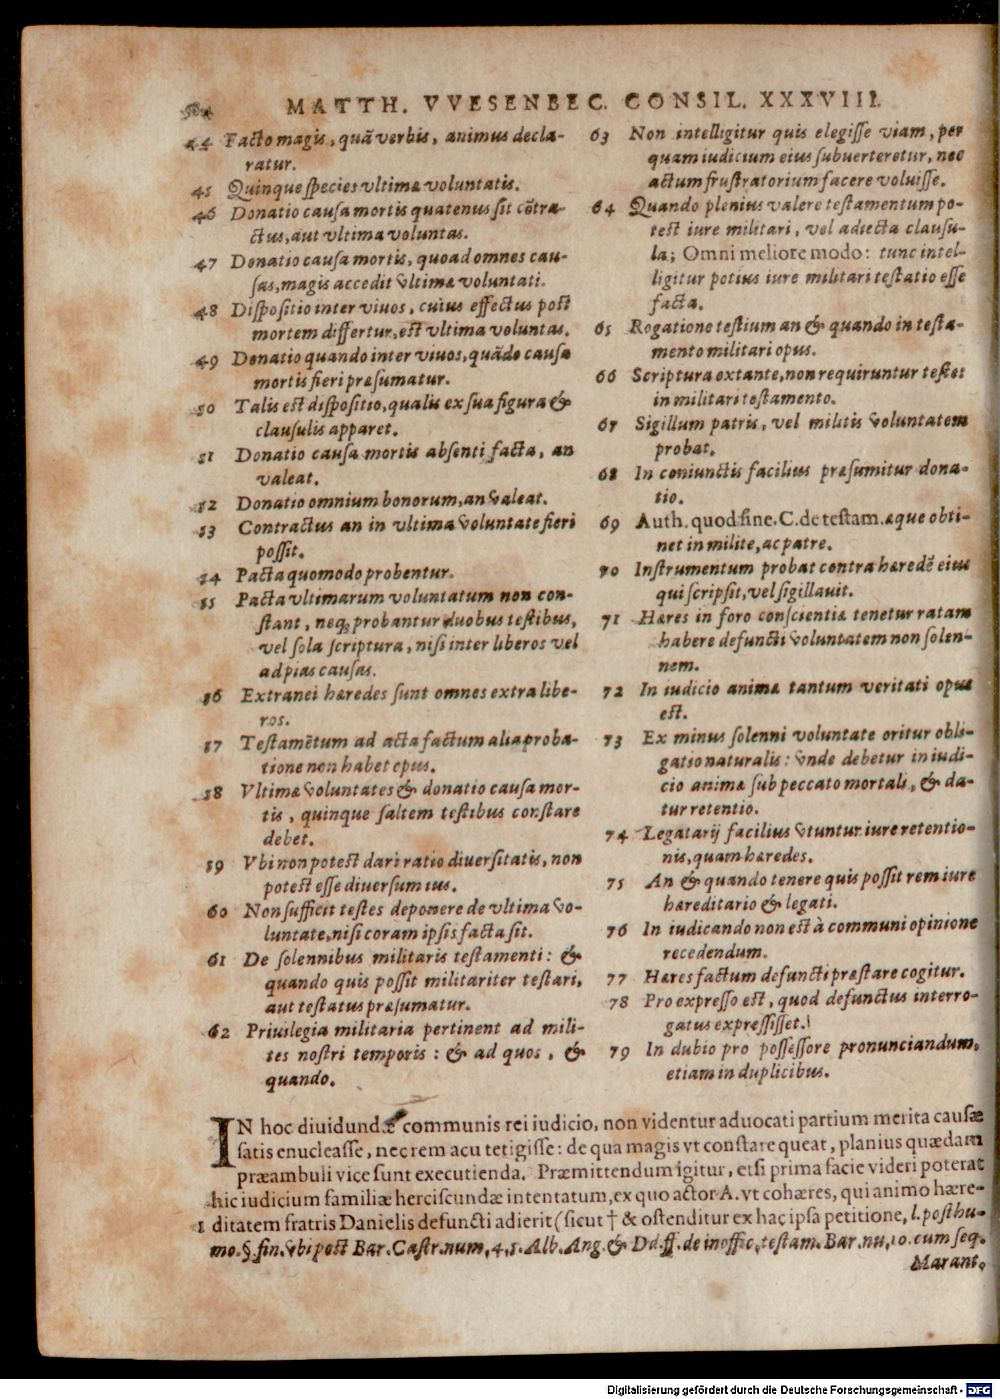 MATTH. VVESENBEC. CONSIL. XXXVIII.
44 Facto magis, quā verbis, animus decla-
ratur.
45 Quinque species vltimæ voluntatis.
46 Donatio causa mortis quatenus sit cōtra-
ctus, aut vltima voluntas.
47 Donatio causa mortis, quoad omnes cau-
sas, magis accedit vltimæ voluntati.
48 Dispositio inter viuos, cuius effectus post
mortem differtur, est vltima voluntas.
49 Donatio quando inter viuos, quādo causa
mortis fieri præsumatur.
50 Talis est dispositio, qualis ex sua figura &
clausulis apparet.
51 Donatio causa mortis absenti facta, an
valeat.
52 Donatio omnium bonorum, an valeat.
53 Contractus an in vltima voluntate fieri
possit.
54 Pacta quomodo probentur.
55 Pacta vltimarum voluntatum non con-
stant, neq; probantur duobus testibus,
vel sola scriptura, nisi inter liberos vel
ad pias causas.
56 Extranei hæredes sunt omnes extra libe-
ros.
57 Testamētum ad acta factum alia proba-
tione non habet opus.
58 Vltimæ voluntates & donatio causa mor-
tis, quinque saltem testibus constare
debet.
59 Vbi non potest dari ratio diuersitatis, non
potest esse diuersum ius.
60 Non sufficit testes deponere de vltima vo-
luntate, nisi coram ipsis facta sit.
61 De solennibus militaris testamenti: &
quando quis possit militariter testari,
aut testatus præsumatur.
62 Priuilegia militaria pertinent ad mili-
tes nostri temporis: & ad quos, &
quando.
63 Non intelligitur quis elegisse viam, per
quam iudicium eius subuerteretur, nec
actum frustratorium facere voluisse.
64 Quando plenius valere testamentum po-
test iure militari, vel adiecta clausu-
la; Omni meliore modo: tunc intel-
ligitur potius iure militari testatio esse
facta.
65 Rogatione testium an & quando in testa-
mento militari opus.
66 Scriptura extante, non requiruntur testes
in militari testamento.
67 Sigillum patris, vel militis voluntatem
probat.
68 In coniunctis facilius præsumitur dona-
tio.
69 Auth. quod sine. C. de testam. æque obti-
net in milite, ac patre.
70 Instrumentum probat contra hæredē eius
qui scripsit, vel sigillauit.
71 Hæres in foro conscientiæ tenetur ratam
habere defuncti voluntatem non solen-
nem.
72 In iudicio animæ tantum veritati opus
est.
73 Ex minus solenni voluntate oritur obli-
gatio naturalis: vnde debetur in iudi-
cio animæ sub peccato mortali, & da-
tur retentio.
74 Legatarij facilius vtuntur iure retentio-
nis, quam hæredes.
75 An & quando tenere quis possit rem iure
hæreditario & legati.
76 In iudicando non est à communi opinione
recedendum.
77 Hæres factum defuncti præstare cogitur.
78 Pro expresso est, quod defunctus interro-
gatus expressisset.
79 In dubio pro possessore pronunciandum,
etiam in duplicibus.
IN hoc diuidundæ communis rei iudicio, non videntur aduocati partium merita causæ
satis enucleasse, nec rem acu tetigisse: de qua magis vt constare queat, planius quædam
præambuli vice sunt executienda. Præmittendum igitur, etsi prima facie videri poterat
hic iudicium familiæ herciscundæ intentatum, ex quo actor A. vt cohæres, qui animo hære-
1 ditatem fratris Danielis defuncti adierit (sicut † & ostenditur ex hac ipsa petitione, l. posthu-
mo. §. fin. vbi post Bar. Castr. num. 4. 5. Alb. Ang. & Dd. ff. de inoffic. testam. Bar. nu. 10. cum seq.
Marant.
Digitalisierung gefördert durch die Deutsche Forschungsgemeinschaft - DFG